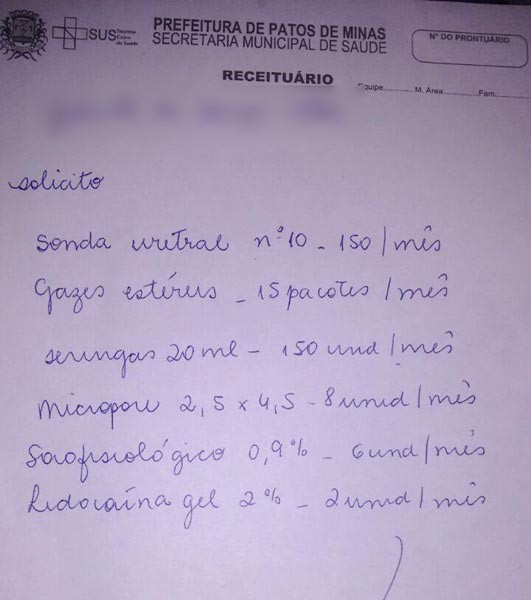 SUS
PREFEITURA DE PATOS DE MINAS
SECRETARIA MUNICIPAL DE SAÚDE
Nº DO PRONTUÁRIO
RECEITUÁRIO
Equipe............ M. Área............... Fam.:............
solicito
Sonda uretral nº 10 - 150 / mês
Gazes estéreis - 15 pacotes / mês
seringas 20 ml - 150 und / mês
Micropore 2,5 x 4,5 - 8 unid / mês
Soro fisiológico 0,9% - 6 und / mês
Lidocaína gel 2% - 2 unid / mês